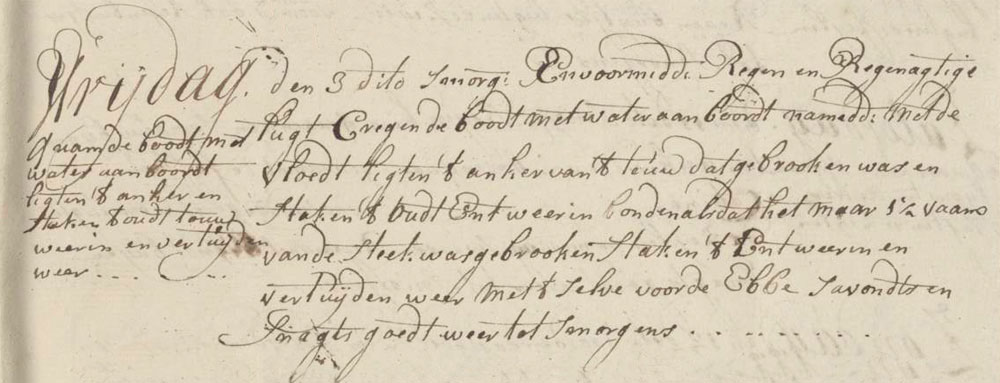 Vrijdag. den 3 dito Smorg: Envoormidd: Regen en Regenagtige
lugt Cregen de boodt met water aan boordt namedd: met de
vloedt ligten 't anker van 't teúw dat gebrooken was en
staken 't oudt Ent weer in bonden als dat het maar 1½ vaam
van de steek was gebrooken staken 't Ent weer in en
vertuijden weer met 't selve voor de Ebbe Savondts en
Snagts goedt weer tot Smorgens . . . . . . . . .
quam de boodt met
water aan boordt
ligten 't anker en
staken 't oudt touw
weer in en vertuijden
weer . . . .